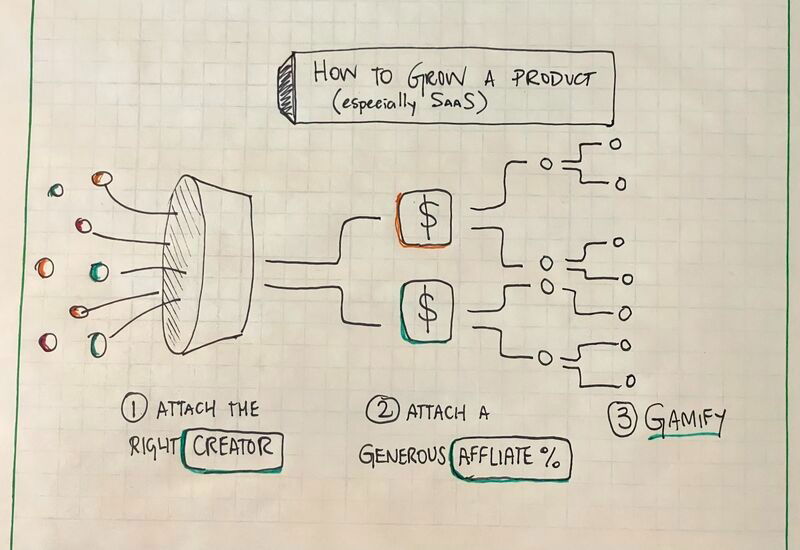 HOW TO GROW A PRODUCT
(especially SaaS)
$
$
① ATTACH THE
RIGHT CREATOR
② ATTACH A
GENEROUS AFFLIATE %
③ GAMIFY